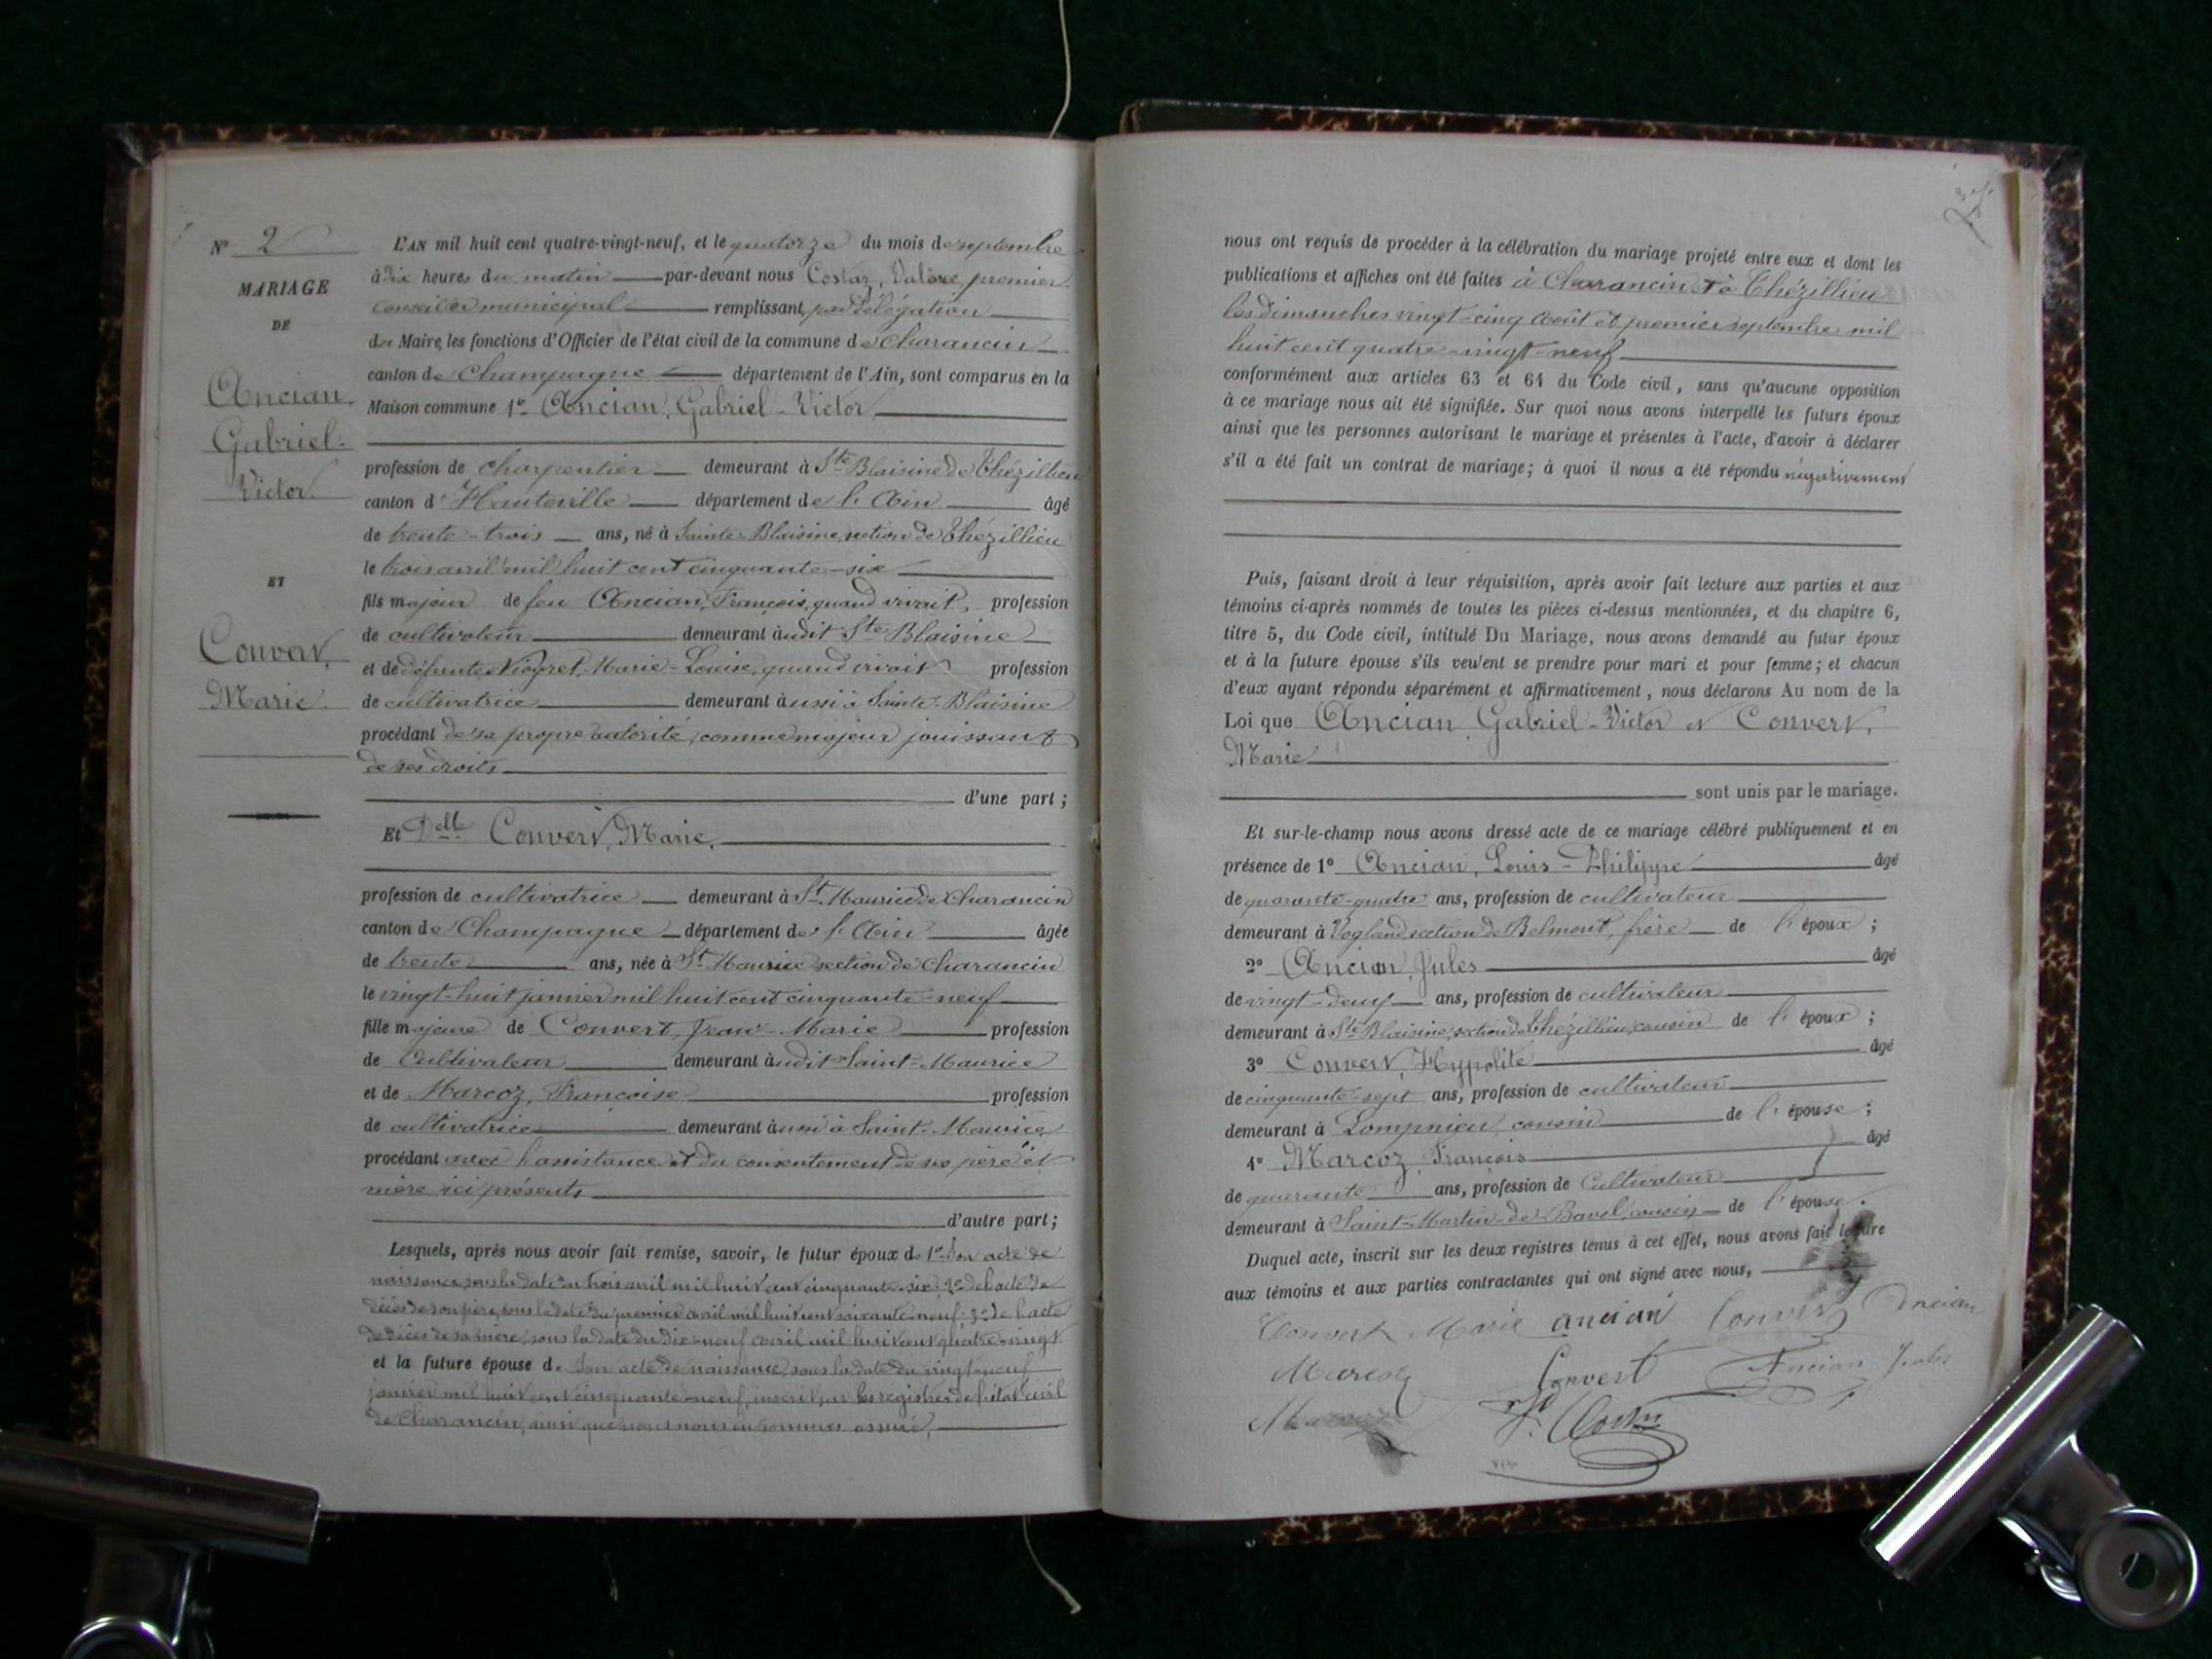 N° 2
MARIAGE
DE
Ancian,
Gabriel-
Victor.
ET
Convert,
Marie.
L'AN mil huit cent quatre-vingt-neuf, et le quatorze du mois de septembre
à dix heures du matin par-devant nous Costaz, premier
conseiller municipal remplissant, par délégation
du Maire, les fonctions d'Officier de l'état civil de la commune de Charancin
canton de Champagne département de l'Ain, sont comparus en la
Maison commune 1° Ancian, Gabriel-Victor,
profession de charpentier demeurant à Ste Blaisine de Thézillieu
canton d'Hauteville département de l'Ain âgé
de trente-trois ans, né à Sainte-Blaisine, section de Thézillieu
le trois avril mil huit cent cinquante-six
fils majeur de feu Ancian, François, quand vivait, profession
de cultivateur demeurant audit Ste Blaisine
et de défunte Niogret, Marie-Louise, quand vivait profession
de cultivatrice demeurant aussi à Sainte-Blaisine
procédant de sa propre autorité, comme majeur jouissant
de ses droits
d'une part ;
Et Delle Convert, Marie,
profession de cultivatrice demeurant à St Maurice de Charancin
canton de Champagne département de l'Ain âgée
de trente ans, née à St Maurice section de Charancin
le vingt-huit janvier mil huit cent cinquante-neuf
fille majeure de Convert, Jean-Marie profession
de Cultivateur demeurant audit Saint-Maurice
et de Marcoz, Françoise profession
de cultivatrice demeurant aussi à Saint-Maurice
procédant avec l'assistance et du consentement de ses père et
mère ici présents
d'autre part ;
Lesquels, après nous avoir fait remise, savoir, le futur époux de 1° Son acte de
naissance, sous la date du trois avril mil huit cent cinquante-six ; 2° de l'acte de
décès de son père, sous la date du premier avril mil huit cent soixante-neuf ; 3° de l'acte
de décès de sa mère, sous la date du dix-neuf avril mil huit cent quatre-vingt
et la future épouse de Son acte de naissance, sous la date du vingt-neuf
janvier mil huit cent cinquante-neuf, inscrit sur les registres de l'état civil
de Charancin, ainsi que nous nous en sommes assuré,
nous ont requis de procéder à la célébration du mariage projeté entre eux et dont les
publications et affiches ont été faites à Charancin et à Thézillieu
les dimanches vingt-cinq août et premier septembre mil
huit cent quatre-vingt-neuf
conformément aux articles 63 et 64 du Code civil, sans qu'aucune opposition
à ce mariage nous ait été signifiée. Sur quoi nous avons interpellé les futurs époux
ainsi que les personnes autorisant le mariage et présentes à l'acte, d'avoir à déclarer
s'il a été fait un contrat de mariage; à quoi il nous a été répondu négativement
Puis, faisant droit à leur réquisition, après avoir fait lecture aux parties et aux
témoins ci-après nommés de toutes les pièces ci-dessus mentionnées, et du chapitre 6,
titre 5, du Code civil, intitulé Du Mariage, nous avons demandé au futur époux
et à la future épouse s'ils veulent se prendre pour mari et pour femme ; et chacun
d'eux ayant répondu séparément et affirmativement, nous déclarons Au nom de la
Loi que Ancian, Gabriel-Victor et Convert,
Marie
sont unis par le mariage.
Et sur-le-champ nous avons dressé acte de ce mariage célébré publiquement et en
présence de 1° Ancian, Louis-Philippe âgé
de quarante-quatre ans, profession de cultivateur
demeurant à Vogland, section de Belmont, frère de l'époux ;
2° Ancian, Jules âgé
de vingt-deux ans, profession de cultivateur
demeurant à Ste Blaisine, section de Thézillieu, cousin de l'époux ;
3° Convert, Hypolite âgé
de cinquante-sept ans, profession de cultivateur
demeurant à Lompnieu, cousin de l'épouse ;
4° Marcoz, François âgé
de quarante ans, profession de Cultivateur
demeurant à Saint-Martin-de-Bavel, cousin de l'épouse.
Duquel acte, inscrit sur les deux registres tenus à cet effet, nous avons fait lecture
aux témoins et aux parties contractantes qui ont signé avec nous,
Convert Marie ancian Convert Ancian
Marcoz Convert Ancian Jules